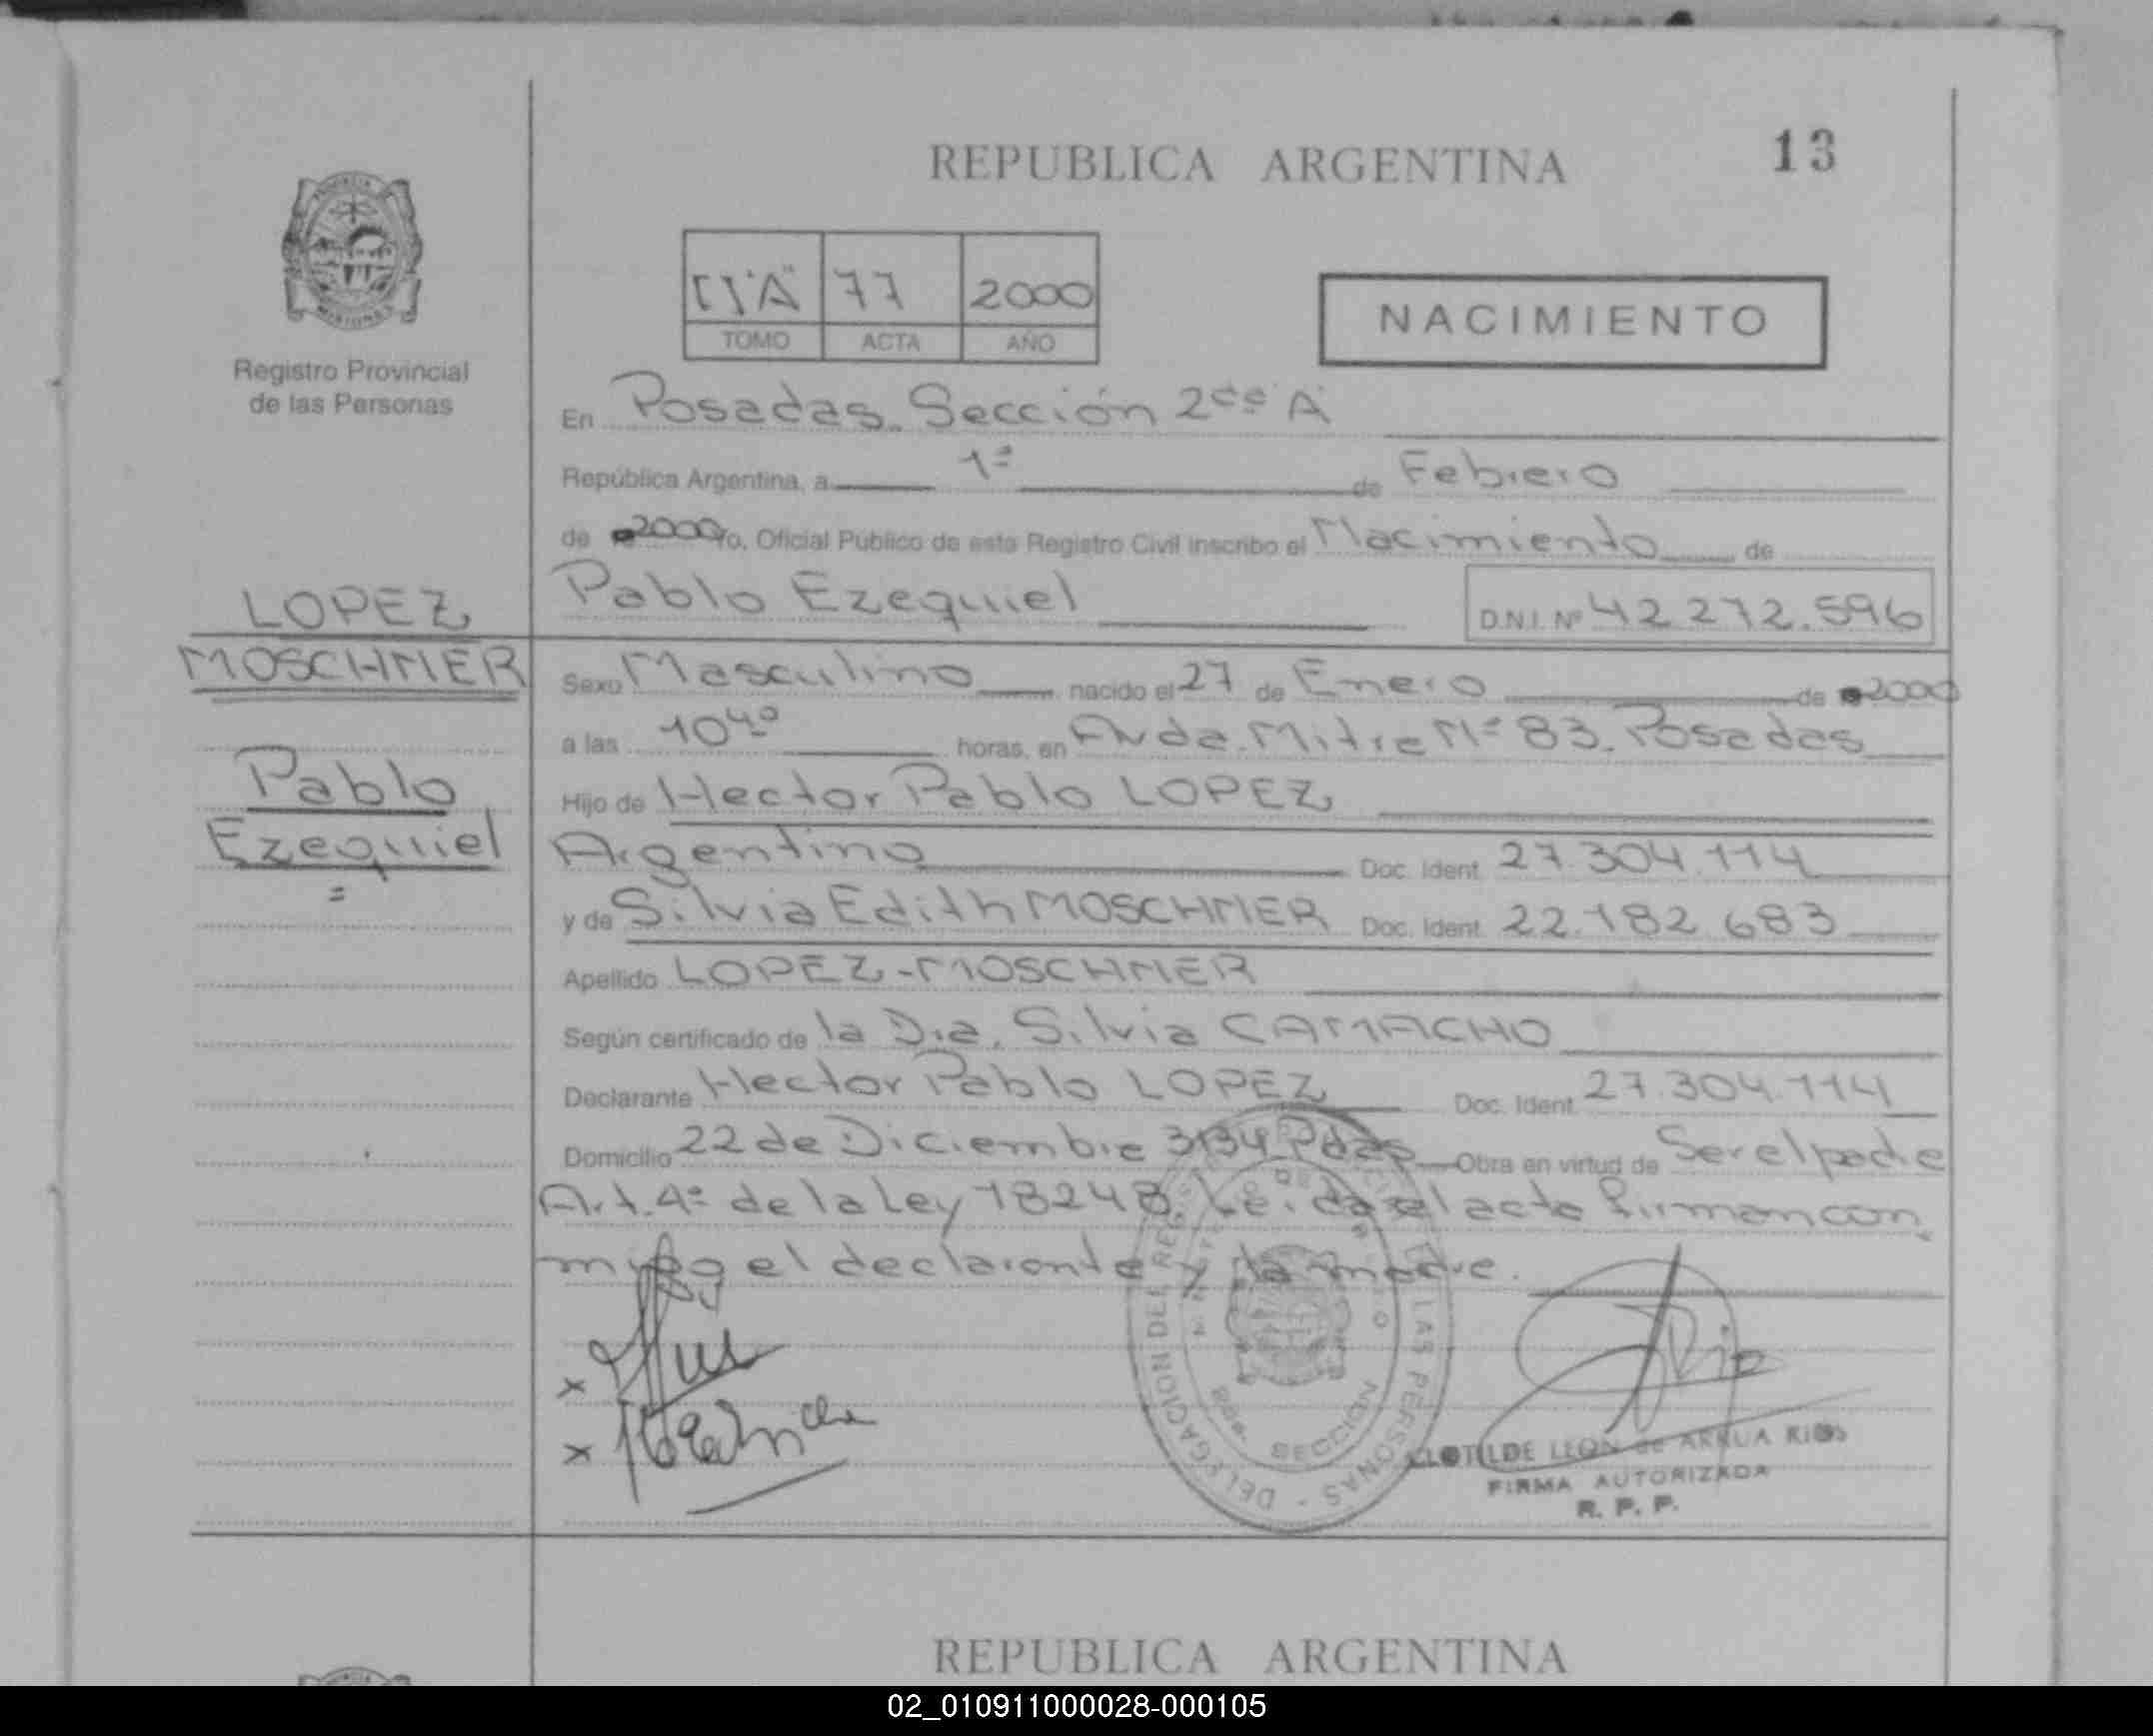 REPUBLICA ARGENTINA
13
II "A" 77 2000
TOMO ACTA AÑO
NACIMIENTO
MISIONES
Registro Provincial
de las Personas
En Posadas. Sección 2da "A"
República Argentina, a 1º de Febrero
de 2000 Yo, Oficial Público de este Registro Civil inscribo el Nacimiento de
LOPEZ
MOSCHNER
Pablo
Ezequiel
=
Pablo Ezequiel D.N.I. Nº 42 272.596
Sexo Masculino nacido el 27 de Enero de 2000
a las 10 40 horas, en Avda. Mitre Nº 83. Posadas
Hijo de Hector Pablo LOPEZ
Argentino Doc. Ident. 27.304.114
y de Silvia Edith MOSCHNER Doc. Ident. 22.182.683
Apellido LOPEZ-MOSCHNER
Según certificado de la Dra. Silvia CAMACHO
Declarante Hector Pablo LOPEZ Doc. Ident. 27.304.114
Domicilio 22 de Diciembre 3134 Pdas Obra en virtud de Ser el padre
Art. 4º de la Ley 18248. Leida el acta firman con
migo el declarante y la madre.
DELEGACION DEL LAS PERSONAS
SECCION
CLOTILDE LEON de ARRUA RIOS
FIRMA AUTORIZADA
R. P. P.
REPUBLICA ARGENTINA
02_010911000028-000105